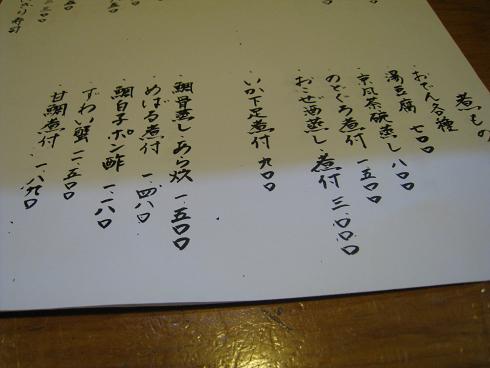 煮もの
・おでん各種
・湯豆腐 七〇〇
・京風茶碗蒸し 八〇〇
・のどぐろ煮付 一.五〇〇
・おこぜ酒蒸し・煮付 三.〇〇〇
・いか下足煮付 九〇〇
・鯛骨蒸し・あら炊 一.五〇〇
・めばる煮付 一.四八〇
・鯛白子ポン酢 一.一八〇
・ずわい蟹 二.五〇〇
・甘鯛煮付